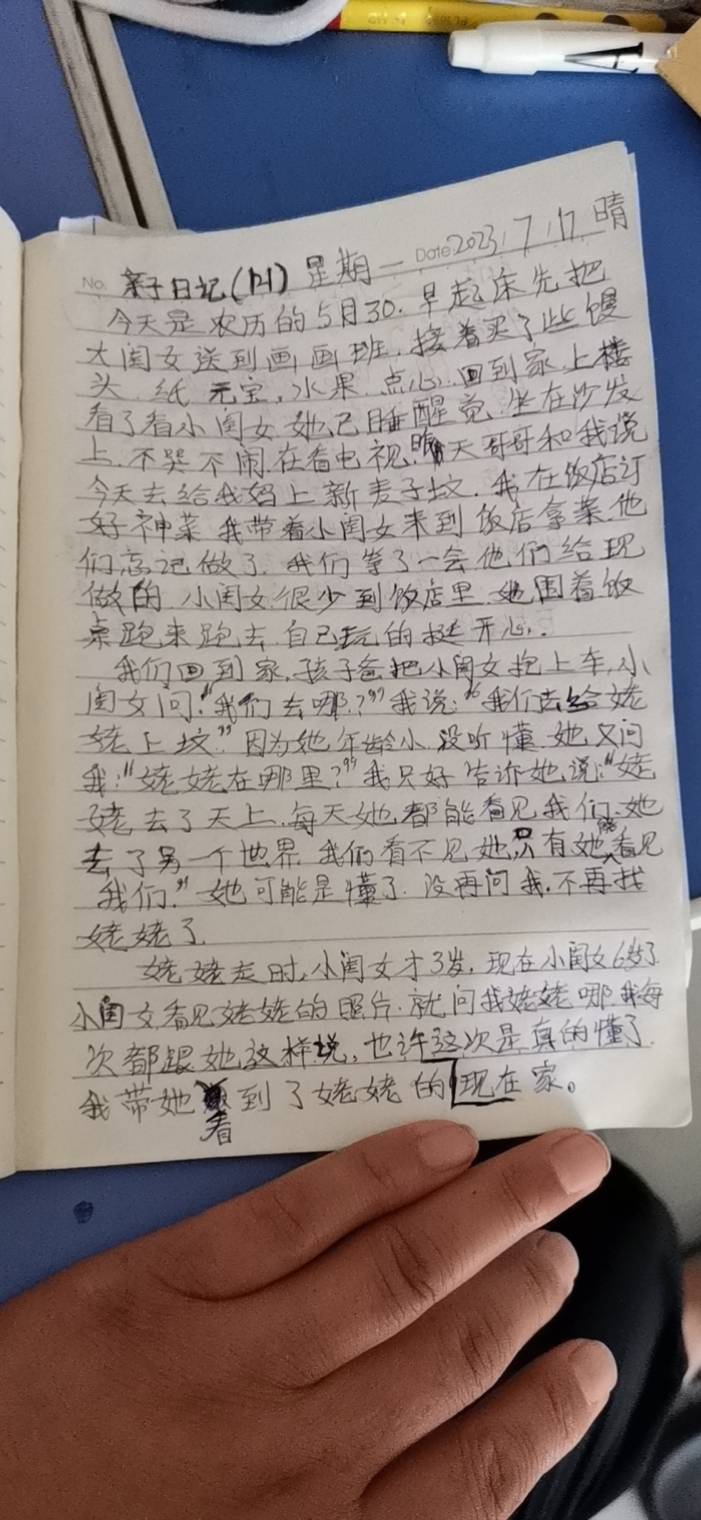 No. 亲子日记(121) 星期一 Date: 2023/7/17 晴
今天是农历的5月30.早起床先把
大闺女送到画画班.接着买了些馒
头.纸元宝,水果.点心.回到家上楼
看了看小闺女.她已睡醒觉.坐在沙发
上.不哭不闹.在看电视.昨天哥哥和我说
今天去给我妈上新麦子坟.我在饭店订
好神菜.我带着小闺女来到饭店拿菜.他
们忘记做了.我们等了一会他们给现
做的.小闺女很少到饭店里.她围着饭
桌跑来跑去.自己玩的挺开心.
我们回到家.孩子爸把小闺女抱上车,小
闺女问:“我们去哪?”我说:“我们去给姥
姥上坟”因为她年龄小.没听懂.她又问
我:“姥姥在哪里?”我只好告诉她,说:“姥
姥去了天上.每天她都能看见我们.她
去了另一个世界.我们看不见她,只有她能看见
我们.”她可能是懂了.没再问我.不再找
姥姥了.
姥姥走时,小闺女才3岁,现在小闺女6岁了.
小闺女看见姥姥的照片.就问我姥姥哪.我每
次都跟她这样说,也许这次是真的懂了.
我带她看到了姥姥的现在家。